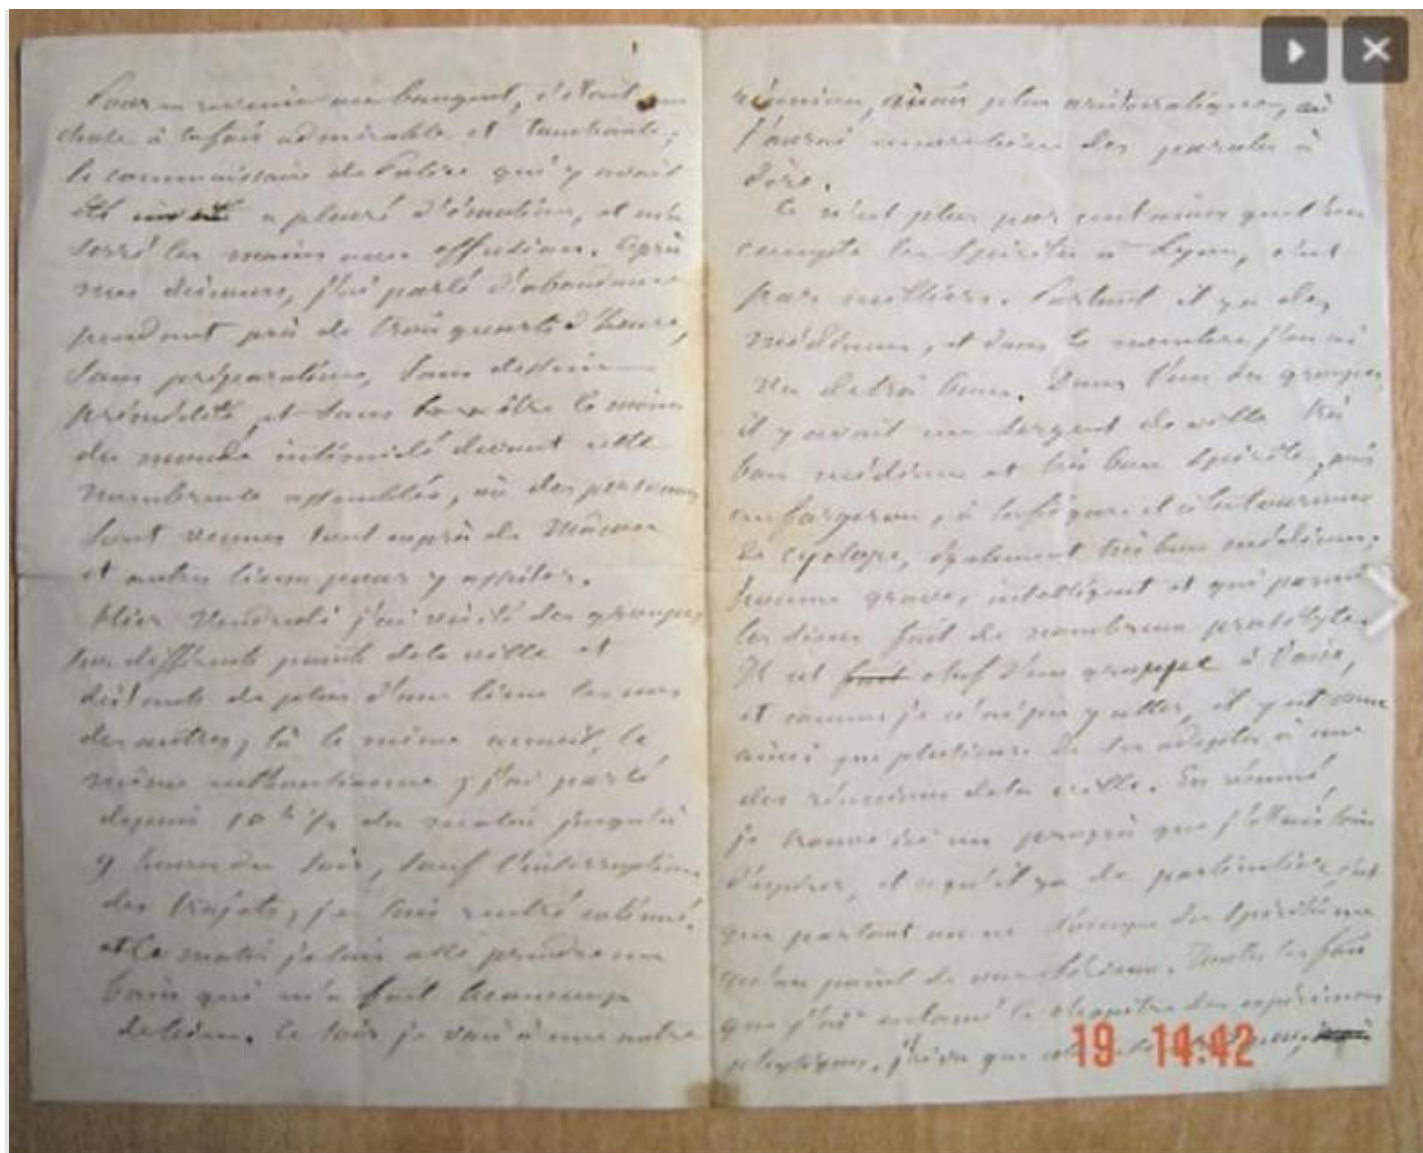 Pour en revenir au banquet, c'était une
chose à la fois admirable et touchante;
le commissaire de Police qui y avait
été invité a pleuré d'émotion, et m'a
serré les mains avec effusion. Après
mon discours, j'ai parlé d'abondance
pendant près de trois quarts d'heure,
sans préparation, sans dessein
prémédité, et sans être le moins
du monde intimidé devant cette
nombreuse assemblée, où des personnes
sont venues tout exprès de Mâcon
et autres lieux pour y assister.
Hier Vendredi j'ai visité des groupes
sur différents points de la ville et
distants de plus d'une lieue les uns
des autres; là le même accueil, le
même enthousiasme; j'ai parlé
depuis 10 h 1/2 du matin jusqu'à
9 heures du soir, sauf l'interruption
des trajets; je suis rentré exténué.
et Ce matin je suis allé prendre un
bain qui m'a fait beaucoup
de bien. Ce soir je vais à une autre
réunion, mais plus aristocratique, où
j'aurai encore bien des paroles à
dire.
Ce n'est plus par centaines que l'on
compte les Spirites à Lyon, c'est
par milliers. Partout il y a des
médiums, et dans le nombre j'en ai
vu de très bons. Dans l'un des groupes
il y avait un sergent de ville très
bon médium et très bon Spirite, puis
un forgeron, à la figure et à la tournure
de cyclope, également très bon médium;
homme grave, intelligent et qui parmi
les siens fait de nombreux prosélytes.
Il est chef d'un groupe à Vaise,
et comme je n'ai pu y aller, il y est venu
ainsi que plusieurs de ses adeptes à une
des réunions de la ville. En résumé,
je trouve ici un progrès que j'étais loin
d'espérer, et ce qu'il y a de particulier, c'est
que partout on ne s'occupe du Spiritisme
qu'au point de vue sérieux. Toutes les fois
que j'ai entamé le chapitre des expériences
physiques, j'ai vu que
19 14:42